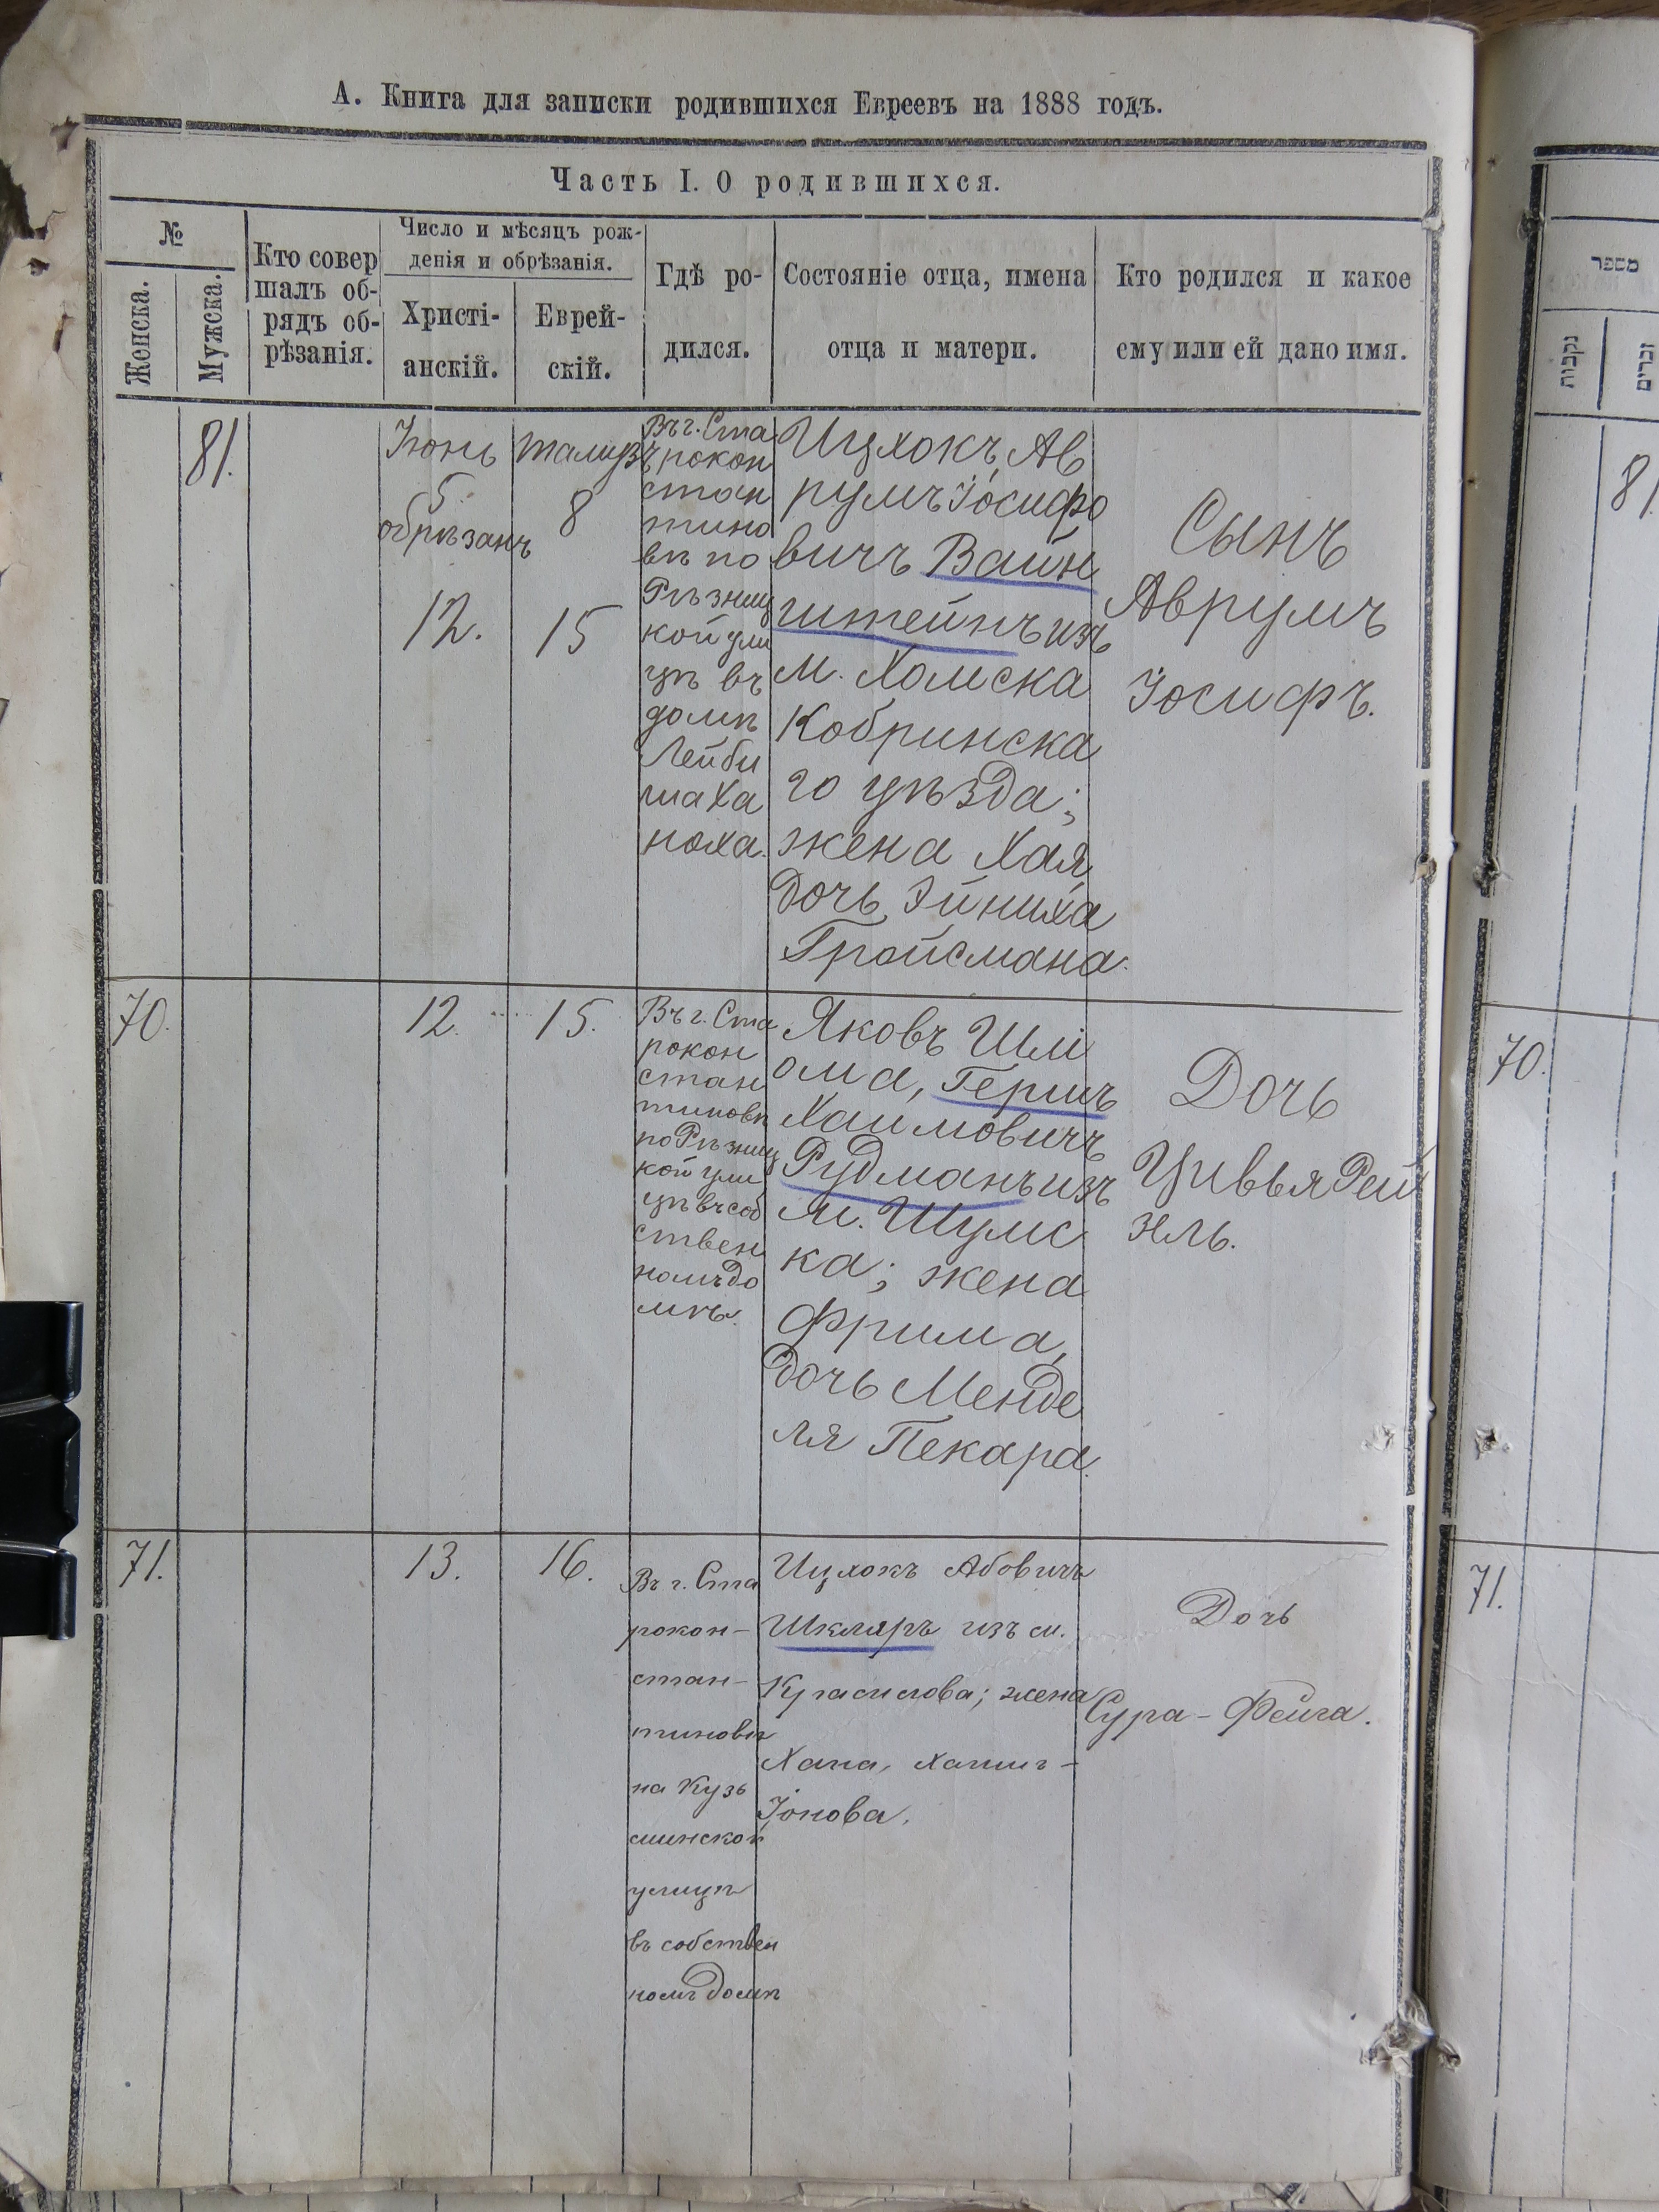 А. Книга для записки родившихся Евреевъ на 1888 годъ.
Часть I. О родившихся.
№
Женска.
Мужска.
Кто совер
шалъ об-
рядъ об-
рѣзанія.
Число и мѣсяцъ рож-
денія и обрѣзанія.
Христі-
анскій.
Еврей-
скій.
Гдѣ ро-
дился.
Состояніе отца, имена
отца и матери.
Кто родился и какое
ему или ей дано имя.
81.
Іюнь
5
обрѣзанъ
12.
8
15
Въ г. Ста
рокон
стан
тино
вѣ по
Рѣзниц
кой ули
цѣ въ
домѣ
Лейби
ша Ха
ноха.
Ицхокъ, Ав
румъ Іосифо
вичъ Вайн
штейнъ изъ
м. Хомска
Кобринска
го уѣзда;
жена Хая
дочь Эйниха
Гройсмана.
Сынъ
Аврумъ
Іосифъ.
70.
12.
15.
Въ г. Ста
рокон
стан
тиновѣ
по Рѣзниц
кой ули
цѣ въ соб
ствен
номъ до
мѣ.
Яковъ Шлі
ома, Гершъ
Хаимовичъ
Рудманъ изъ
м. Шумс
ка; жена
Фрима,
дочь Менде
ля Пекара.
Дочь
Цивья Рей
зль.
71.
13.
16.
Въ г. Ста
рокон-
стан-
тиновѣ
на Кузь
минской
улицѣ
въ собствен
номъ домѣ
Ицхокъ Абовичъ
Шкляръ изъ м.
Красилова; жена
Хана,
Іонова.
Дочь
Сура-Фейга.
מספר
נקבות
זכרים
81
70.
71.